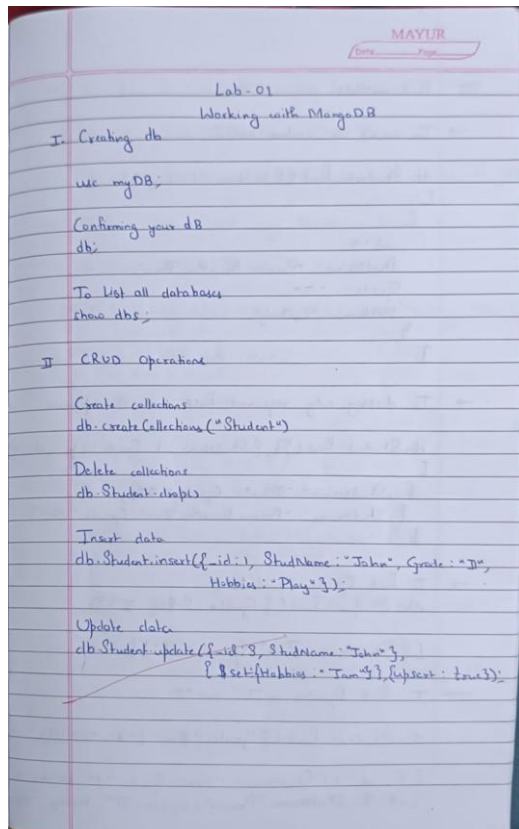 MAYUR
Date Page
Lab-01
Working with MongoDB
I. Creating db
use myDB;
Confirming your dB
db;
To List all databases
show dbs;
II CRUD Operations
Create collections
db.createCollections("Student")
Delete collections
db.Student.drop()
Insert data
db.Student.insert({_id:1, StudName:"John", Grade:"D",
Hobbies:"Play"});
Update data
db.Student.update({_id:3, StudName:"John"},
{$set:{Hobbies:"Jam"}},{upsert:true});